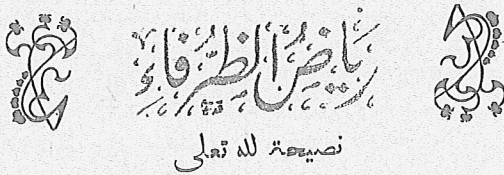 رِيَاضُ الظُّرَفَاءِ
نصيحة لله تعلى